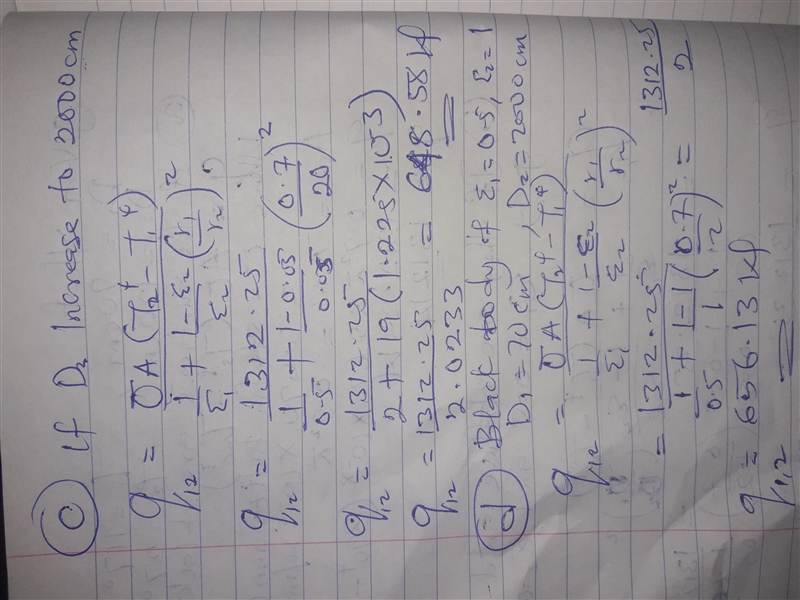 (c) If D₂ Increase to 2000cm
q₁₂ = σA(T₂⁴ - T₁⁴) / (1/ε₁ + 1-ε₂/ε₂ (r₁/r₂)²)
q₁₂ = 1312.25 / (1/0.5 + 1-0.05/0.05 (0.7/20)²)
q₁₂ = 1312.25 / (2 + 19(1.225×10⁻³))
q₁₂ = 1312.25 / 2.0233 = 648.58 kJ
(d) Black body if ε₁=0.5, ε₂=1
D₁=70cm, D₂=2000cm
q₁₂ = σA(T₂⁴ - T₁⁴) / (1/ε₁ + 1-ε₂/ε₂ (r₁/r₂)²)
= 1312.25 / (1/0.5 + 1-1/1 (0.7/2)²) = 1312.25/2
q₁,₂ = 656.13 kJ